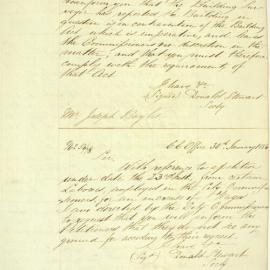 inform you that the Building Sur-
veyor has reported the Building in
question is in contravention of the Building
Act which is imperative, and leaves
the Commissioners no discretion in the
matter, and that you must therefore
comply with the requirements of
that Act.
I have &c
(Signed) Donald Stewart
Secty
Mr Joseph
C C Office 30 January
Sir
With reference to a petition
under date the 23rd Inst, from certain
Labourers employed in the City Commis-
for an increase of Wages
I am directed by the City Commissioners
to request that you will inform the
Petitioners that they do not see any
ground for acceding to their request
I have &c
(Sgd) Donald Stewart
Secty